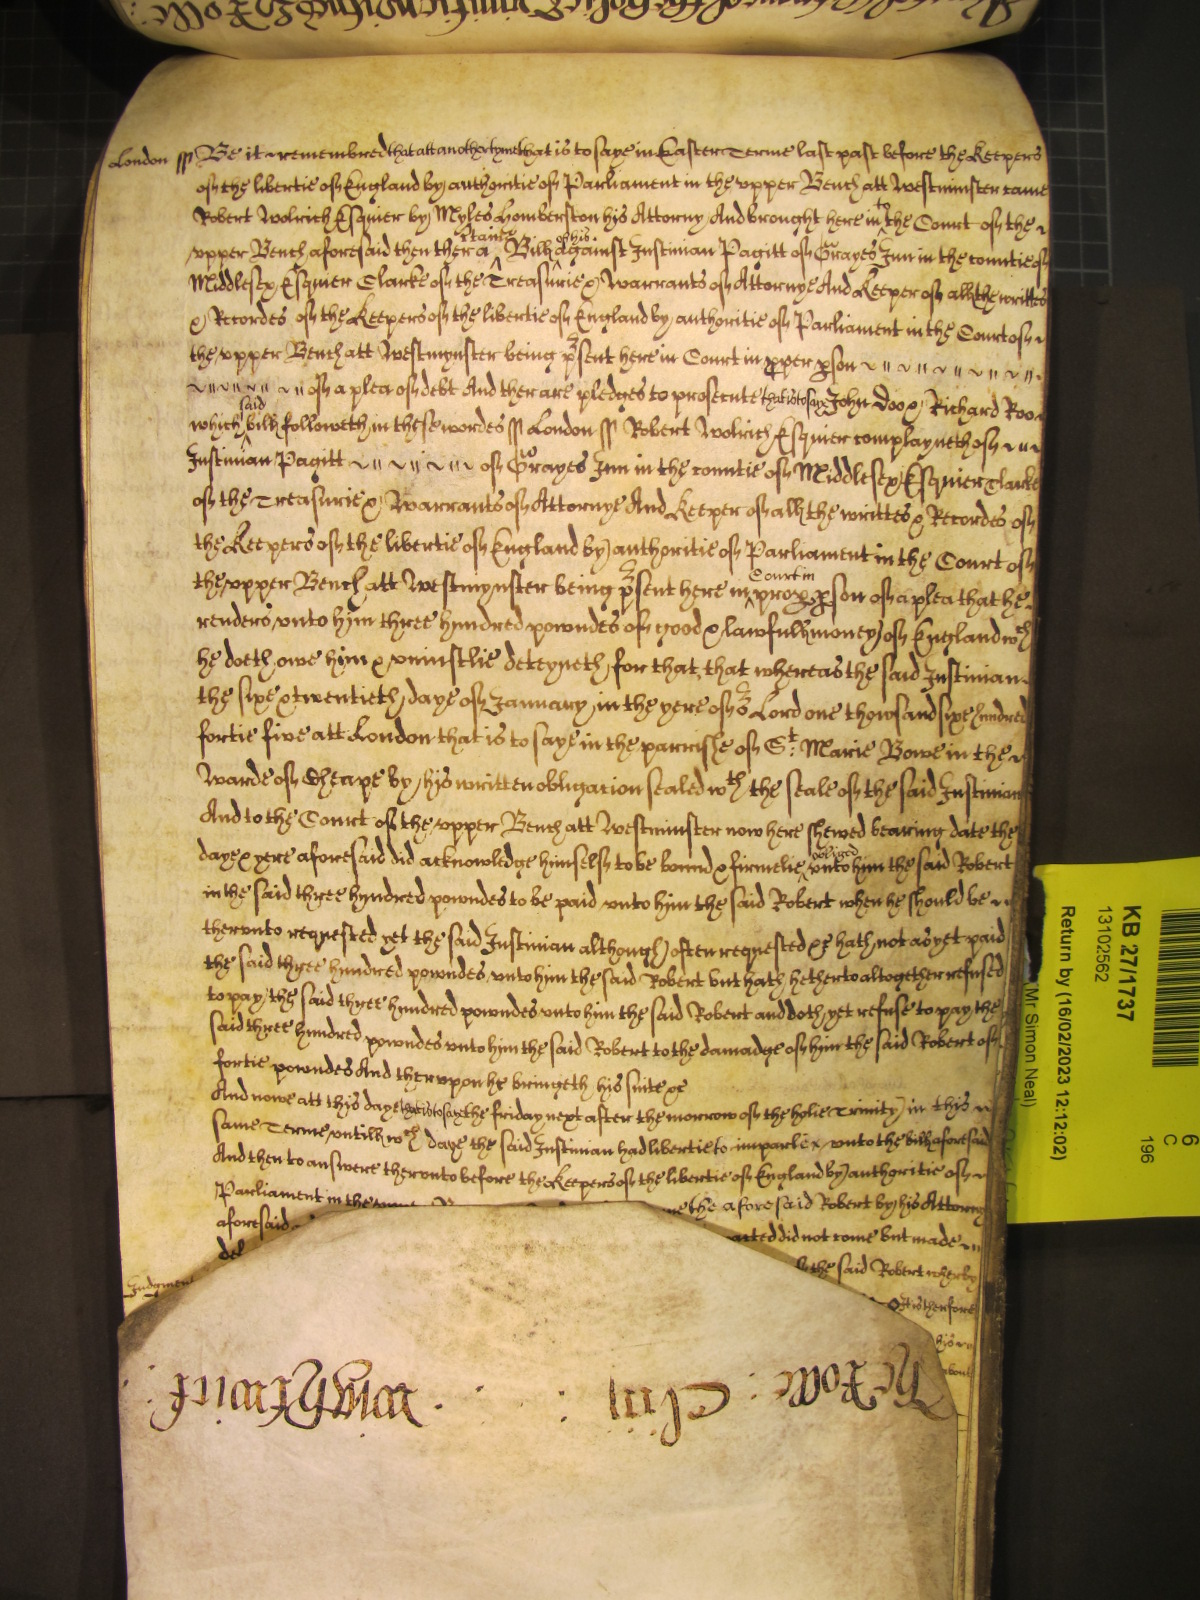 London ss Be it remembred that att another tyme that is to saye in Easter Terme last past before the Keepers
of the libertie of England by authoritie of Parliament in the upper Bench att Westminster came
Robert Wolrich Esquier by Myles Homberston his Attorny And brought here into the Court of the
upper Bench aforesaid then there a certaine Bill of his against Justinian Pagitt of Grayes Inn in the countie of
Middlesex Esquier Clarke of the Treasurie & Warrants of Attornye And Keeper of all the writtes
& Recordes of the Keepers of the libertie of England by authoritie of Parliament in the Court of
the upper Bench att Westmynster being p̄sent here in Court in pper pson
of a plea of debt And there are pledges to prosecute that is to saye John Doo & Richard Roo
which said bill followeth in these wordes ss London ss Robert Wolrich Esquier complayneth of
Justinian Pagitt of Grayes Inn in the countie of Middlesex Esquier Clarke
of the Treasurie & Warrants of Attornye And Keeper of all the writtes & Recordes of
the Keepers of the libertie of England by authoritie of Parliament in the Court of
the upper Bench att Westmynster being p̄sent here in Court in prop pson of a plea that he
renders unto hym three hundred powndes of good & lawfull money of England wch
he doeth owe hym & uniustlie deteyneth for that, that whereas the said Justinian
the sixe & twentieth daye of January in the yere of or Lord one thowsand sixe hundred
fortie five att London that is to saye in the parrishe of St. Marie Bowe in the
Warde of Cheape by his written obligacion sealed wth the seale of the said Justinian
And to the Court of the upper Bench att Westminster now here shewed bearing date the
daye & yere aforesaid did acknowledge himself to be bound & firmelie obliged unto him the said Robert
in the said three hundred powndes to be paid unto him the said Robert when he should be
therunto requested yet the said Justinian although often requested &c hath not as yet paid
the said three hundred powndes unto him the said Robert but hath hetherto altogether refused
to pay the said three hundred powndes unto him the said Robert and doth yet refuse to pay the
said three hundred powndes unto him the said Robert to the damadge of him the said Robert of
fortie powndes And therupon he bringeth his suite &c
And nowe att this daye that is to saye the friday next after the morrow of the holie Trinity in this
same Terme untill wch daye the said Justinian had libertie to imparle unto the bill aforesaid
And then to answere therunto before the Keepers of the libertie of England by authoritie of
Parliament in the the aforesaid Robert by his Attorny
aforesaid did not come but made
the said Robert wherby
Judgment therfore
his
about
The Rolle Cliij
KB 27/1737
13102562
Return by (16/02/2023 12:12:02)
(Mr Simon Neal)
6
C
196